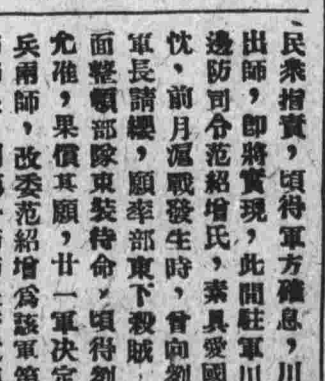 民衆指責，頃得軍方確息，川
出師，卽將實現，此間駐軍川
邊防司令范紹增氏，素具愛國
忱，前月滬戰發生時，曾向劉
軍長請纓，願率部東下殺賊，
面整頓部隊束裝待命，頃得劉
允准，果償其願，廿一軍决定
兵兩師，改委范紹增爲該軍第